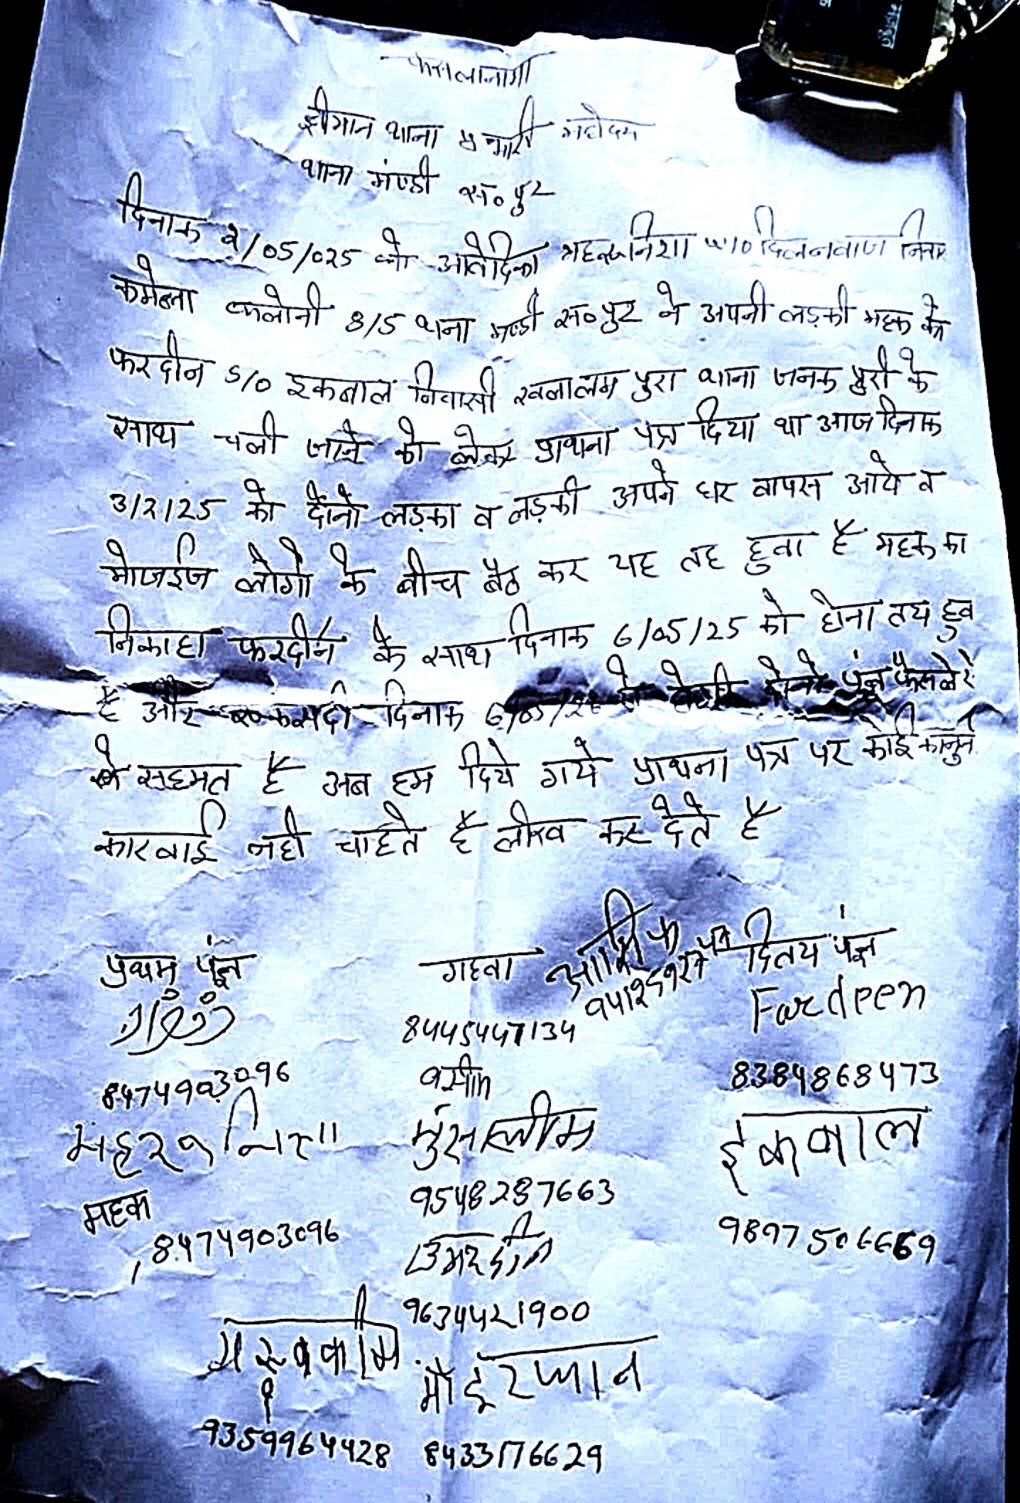 फैसलानामा
श्रीमान थाना प्रभारी महोदय
थाना मण्डी स०पुर
दिनाक 2/05/025 को आवेदिका महरुनिशा w/o दिलनवाज निवा
कमेला कालोनी 3/5 थाना मण्डी स०पुर ने अपनी लड़की महक के
फरदीन S/O इकबाल निवासी खलालम पुरा थाना जनक पुरी के
साथ चली जाने को लेकर प्राथना पत्र दिया था आज दिनाक
3/2/25 को दोनो लड़का व लड़की अपने घर वापस आये व
मोजईज लोगो के बीच बैठ कर यह तह हुवा है महक का
निकाहा फरदीन के साथ दिनाक 6/05/25 को होना तय हुव
है और दिनाक 6/05/25 दोनो पंक्ष फैसले
से सहमत है अब हम दिये गये प्राथना पत्र पर कोई कानुन
कारवाई नही चाहते है लीख कर देते है
प्रथम पंक्ष गहवा आशिफ दितय पंक्ष
Fardeen
8445447134
8474903096 वसीम 8384868473
महरुनिशा मुसलीम इकबाल
महक 9548287663
8474903096 उमरदीन 9897506669
9634421900
9359964428 8433176629